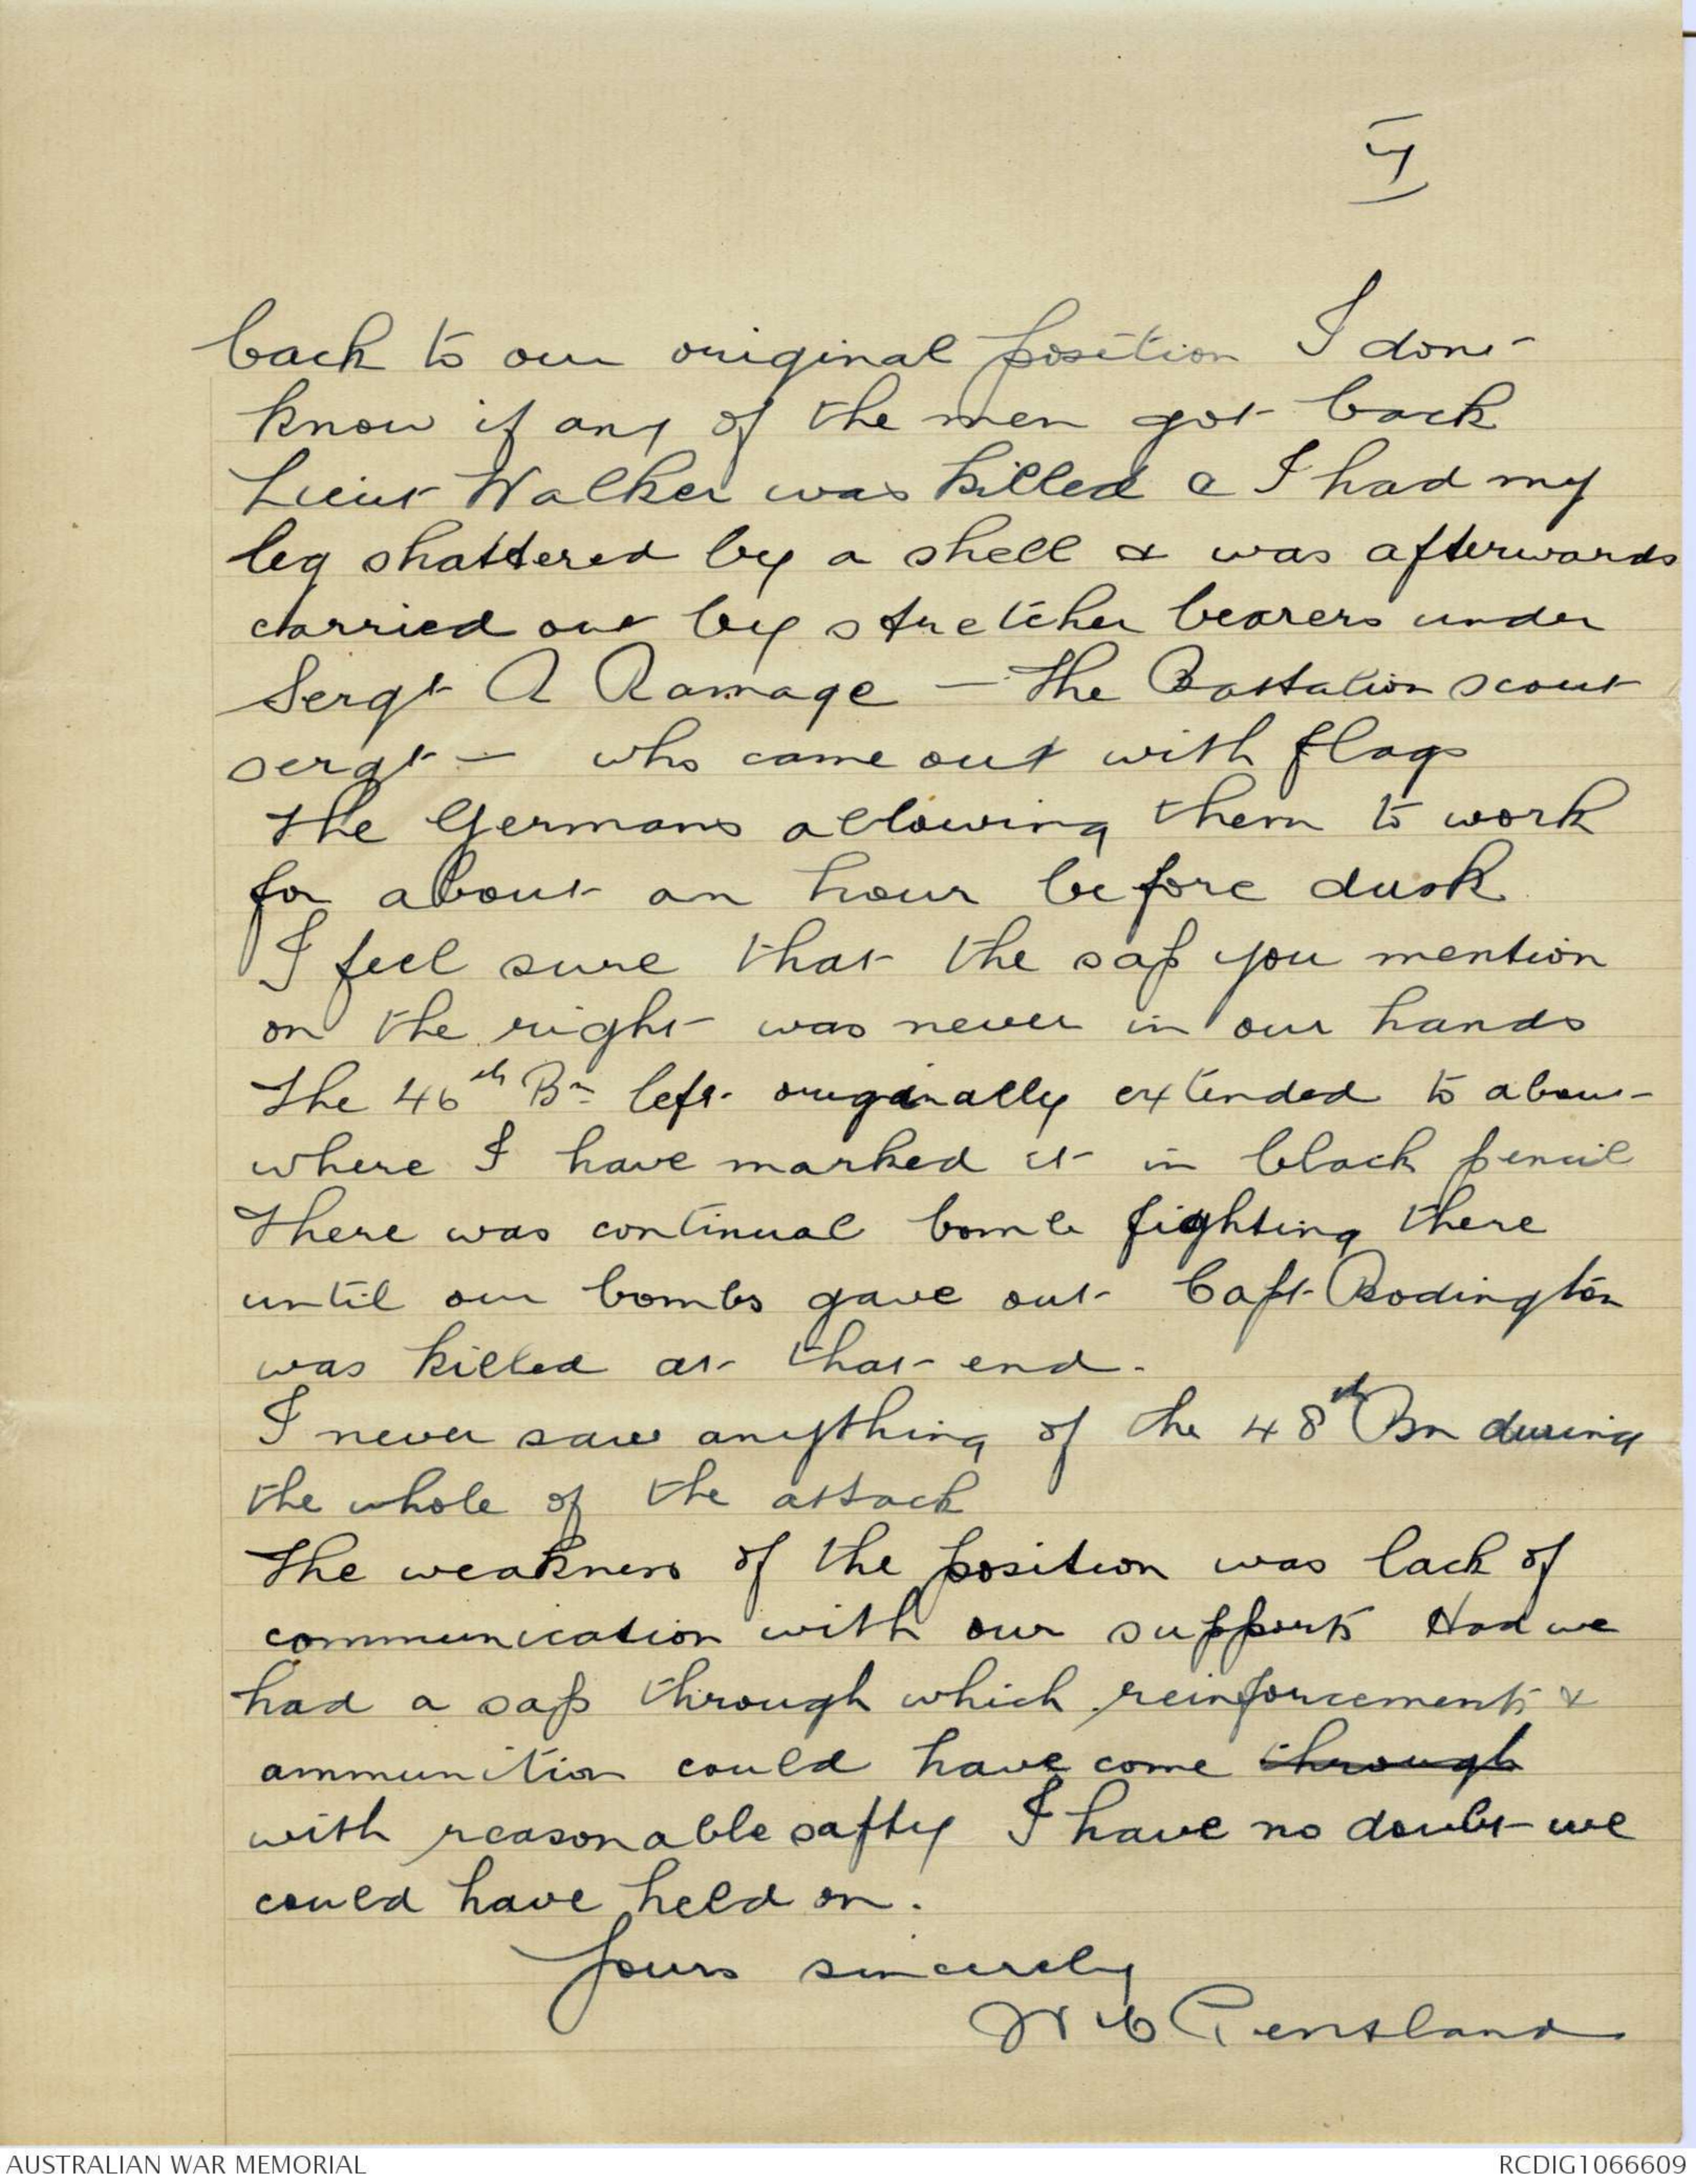 4
back to our original position I dont
know if any of the men got back
Lieut Walker was killed & I had my
leg shattered by a shell & was afterwards
carried out by stretcher bearers under
Sergt A Ramage – the Battalion scout
sergt – who came out with flags
the Germans allowing them to work
for about an hour before dusk
I feel sure that the sap you mention
on the right was never in our hands
The 46th Bn left originally extended to about
where I have marked it in black pencil
There was continual bomb fighting there
until our bombs gave out Capt Bodington
was killed at that end.
I never saw anything of the 48th Bn during
the whole of the attack
The weakness of the position was lack of
communication with our supports Had we
had a sap through which reinforcements &
ammunition could have come through
with reasonable safty I have no doubt we
could have held on.
Yours sincerely
Pentland
AUSTRALIAN WAR MEMORIAL
RCDIG1066609